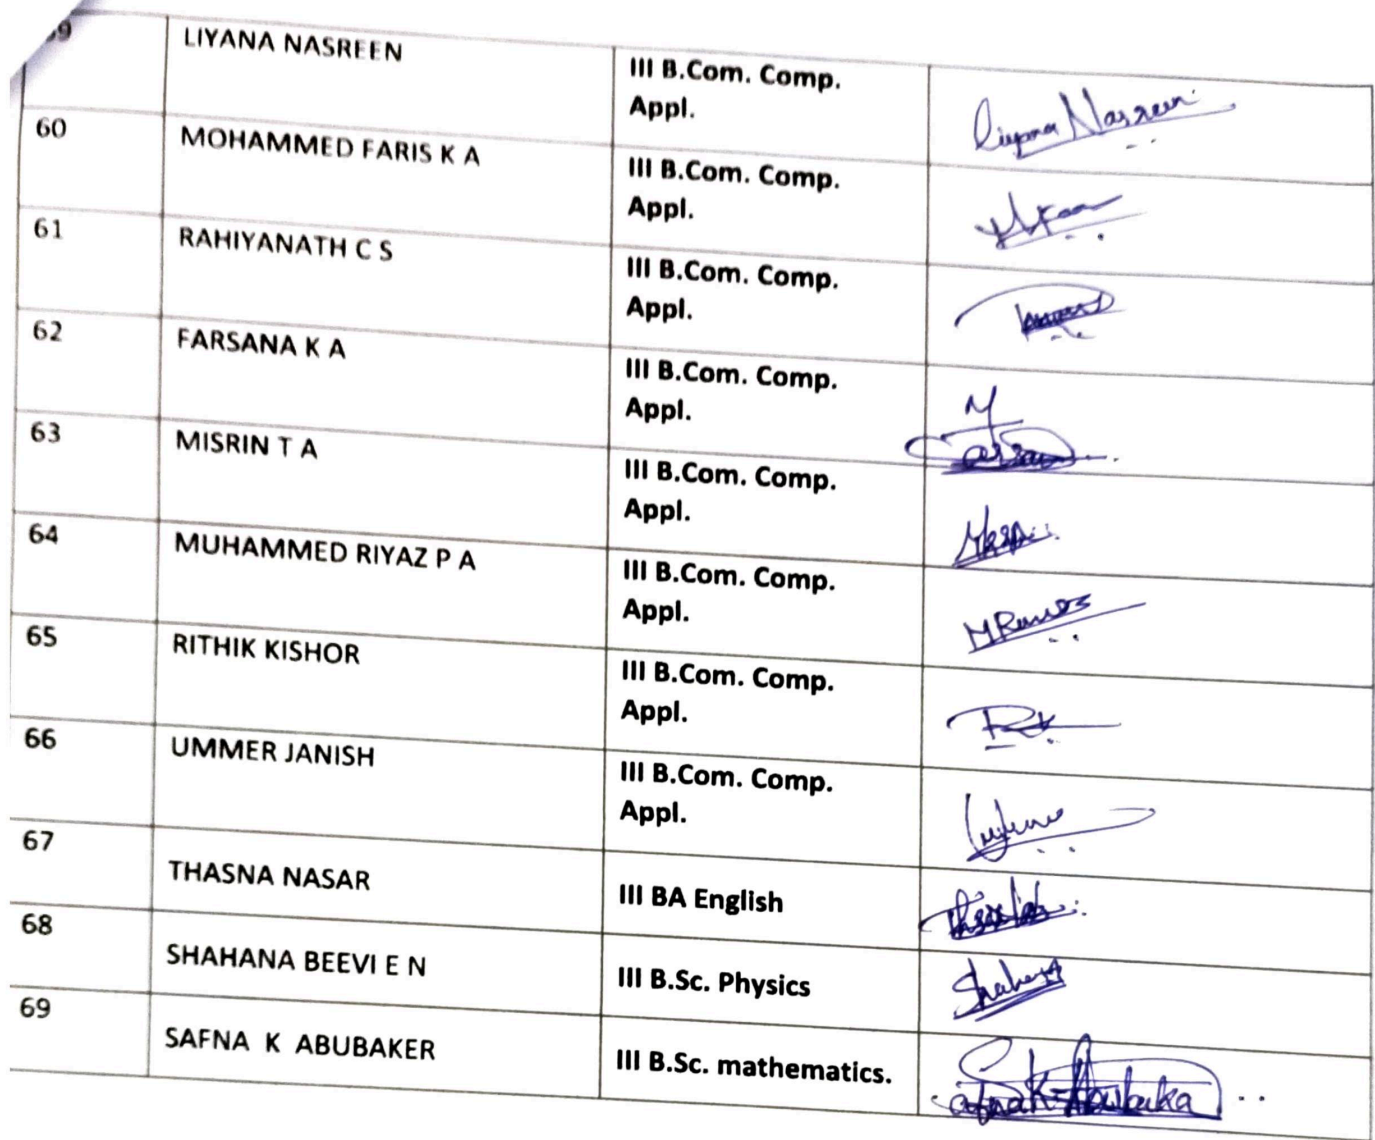 LIYANA NASREEN
III B.Com. Comp.
Appl.
Liyana Nasreen
60
MOHAMMED FARIS K A
III B.Com. Comp.
Appl.
61
RAHIYANATH C S
III B.Com. Comp.
Appl.
62
FARSANA K A
III B.Com. Comp.
Appl.
63
MISRIN T A
III B.Com. Comp.
Appl.
64
MUHAMMED RIYAZ P A
III B.Com. Comp.
Appl.
65
RITHIK KISHOR
III B.Com. Comp.
Appl.
66
UMMER JANISH
III B.Com. Comp.
Appl.
67
THASNA NASAR
III BA English
68
SHAHANA BEEVI E N
III B.Sc. Physics
69
SAFNA K ABUBAKER
III B.Sc. mathematics.